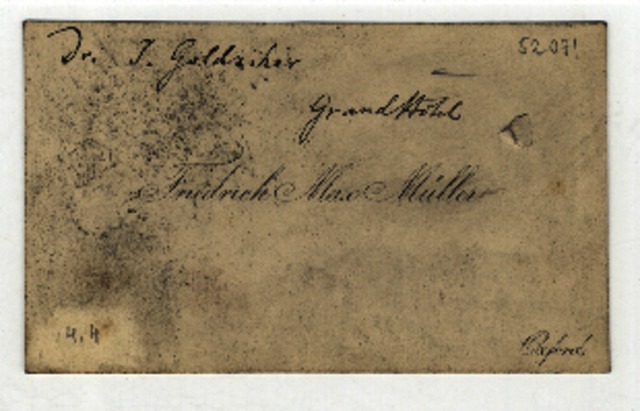 Dr. I. Goldziher
52071
Grand Hôtel
Friedrich Max Müller
4,4
Oxford